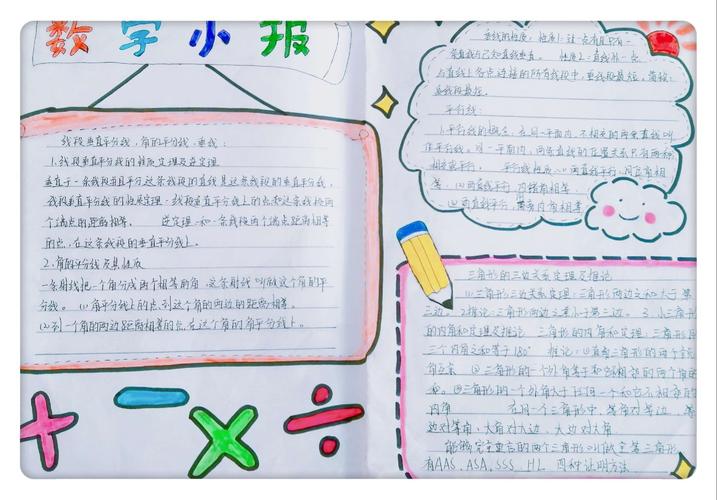 数学小报
线段垂直平分线，角的平分线，垂线：
1.线段垂直平分线的性质定理及逆定理
垂直于一条线段并且平分这条线段的直线是这条线段的垂直平分线。
线段垂直平分线的性质定理：线段垂直平分线上的点和这条线段两
个端点的距离相等。 逆定理：和一条线段两个端点距离相等
的点，在这条线段的垂直平分线上。
2.角的平分线及其性质
一条射线把一个角分成两个相等的角，这条射线叫做这个角的平
分线。 (1)角平分线上的点，到这个角的两边的距离相等。
(2)到一个角的两边距离相等的点，在这个角的角平分线上。
垂线的性质：性质1：过一点有且只有一
条直线与已知直线垂直。 性质2：直线外一点
与直线上各点连接的所有线段中，垂线段最短，简称：
垂线段最短。
平行线：
1.平行线的概念：在同一平面内，不相交的两条直线叫
作平行线。同一平面内，两条直线的位置关系只有两种
相交或平行。 平行线性质：(1)两直线平行，同位角相
等，(2)两直线平行，内错角相等，
(3)两直线平行，同旁内角
三角形的三边关系定理及推论
(1)三角形三边关系定理：三角形两边之和大于第
三边。2.推论：三角形两边之差小于第三边。3.
的内角和定理及推论 三角形的内角和定理：三角形
三个内角之和等于180° 推论：①直角三角形的两个锐
角互余 ②三角形的一个外角等于和它不相邻的两个
和。③三角形的一个外角大于任何一个和它不相邻的
内角 在同一个三角形中，等角对等边，等
边对等角，大角对大边，大边对大角
能够完全重合的两个三角形叫做全等三角形
有AAS.ASA.SSS.HL 四种证明方法